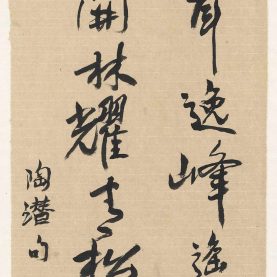 逸峰遥
開林耀青松
陶潜句